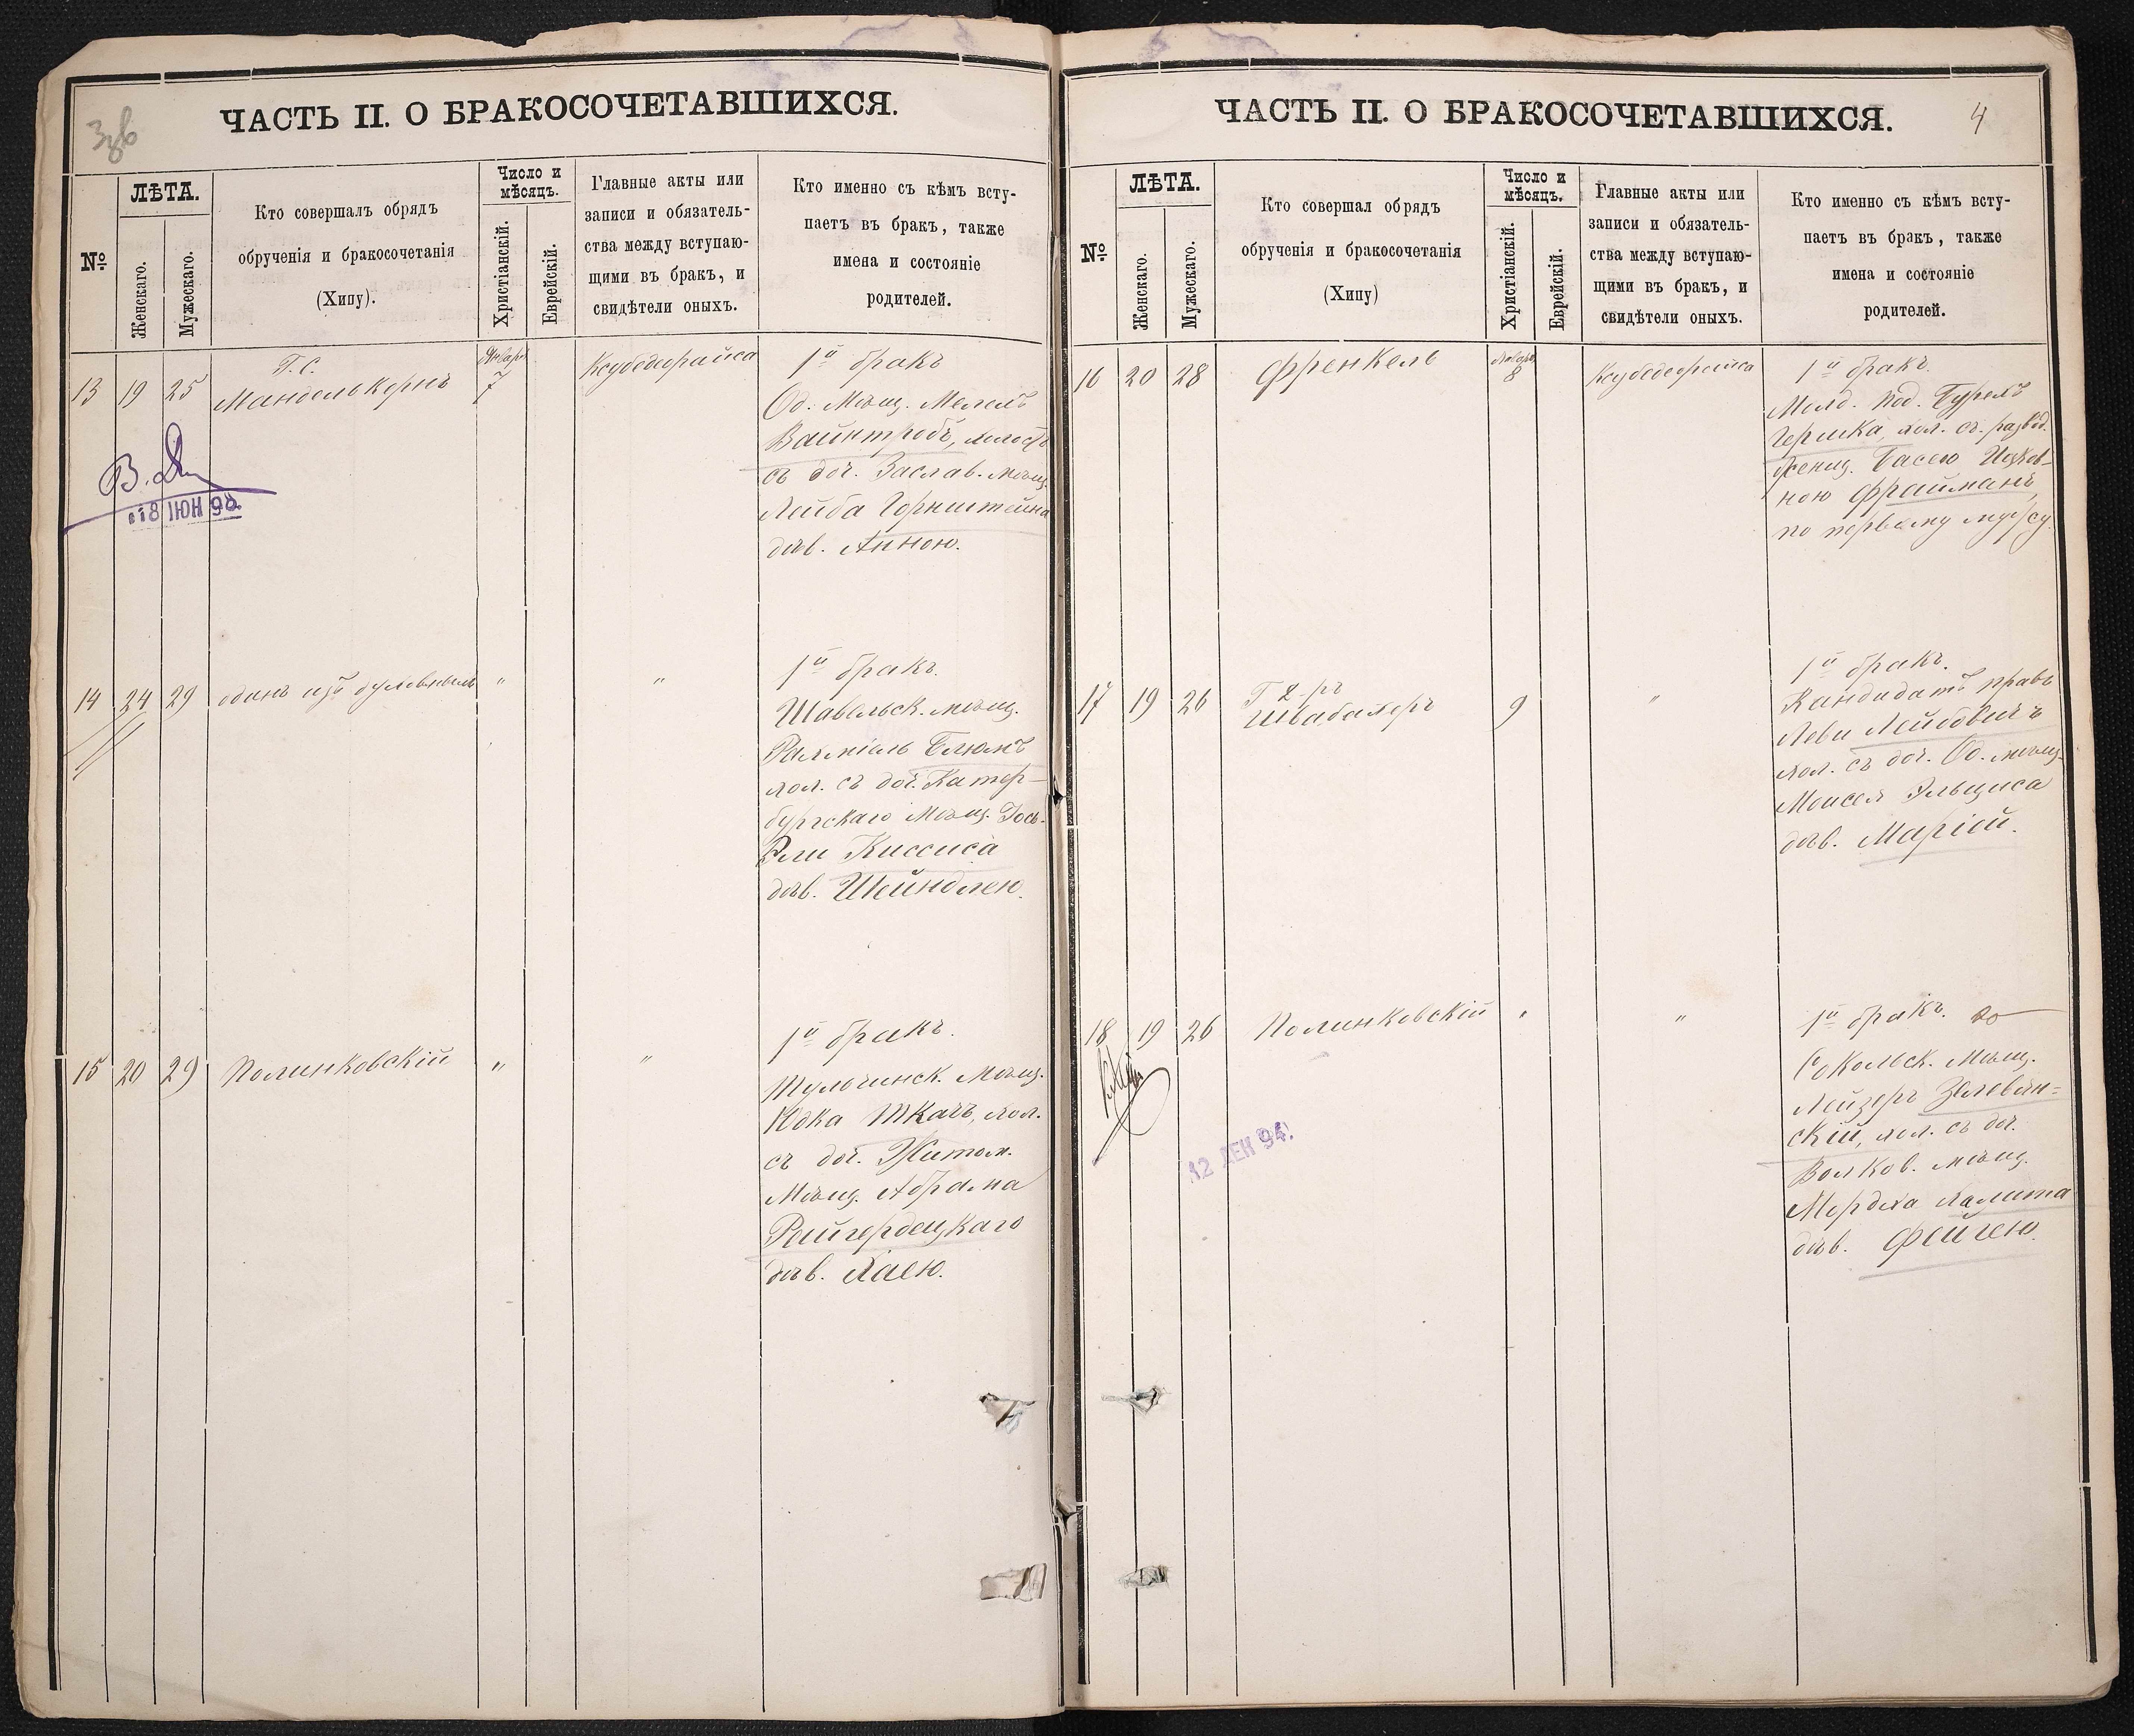 ЧАСТЬ II. О БРАКОСОЧЕТАВШИХСЯ.
№
ЛѢТА.
Женскаго.
Мужескаго.
Кто совершалъ обрядъ
обрученія и бракосочетанія
(Хипу).
Число и
мѣсяцъ.
Христіанскій.
Еврейскій.
Главные акты или
записи и обязатель-
ства между вступаю-
щими въ бракъ, и
свидѣтели оныхъ.
Кто именно съ кѣмъ всту-
паетъ въ бракъ, также
имена и состояніе
родителей.
13 19 25
Г. С.
Манделькернъ
Января
7
Ксубедерайса
1й бракъ
Од. Мѣщ.
Вайнтробъ, холостъ
съ доч. Заслав. мѣщ.
Лейба Горнштейна
дѣв. Анною.
18 ІЮН 98.
14 24 29
одинъ изъ духовныхъ
"
"
1й бракъ.
Шавельск. мѣщ.
Блюмъ
хол. съ доч. Катер-
бургскаго мѣщ. Іось-
Эли Киссиса
дѣв. Шейндлею.
15 20 29
Полинковскій
"
"
1й бракъ.
Тульчинск. Мѣщ.
Юдка Ткачъ, хол.
съ доч. Житом.
Мѣщ. Абрама
Райгердецкаго
дѣв. Хаею.
ЧАСТЬ II. О БРАКОСОЧЕТАВШИХСЯ.
4
№
ЛѢТА.
Женскаго.
Мужескаго.
Кто совершал обрядъ
обрученія и бракосочетанія
(Хипу)
Число и
мѣсяцъ.
Христіанскій.
Еврейскій.
Главные акты или
записи и обязатель-
ства между вступаю-
щими въ бракъ, и
свидѣтели оныхъ.
Кто именно съ кѣмъ всту-
паетъ въ бракъ, также
имена и состояніе
родителей.
16 20 28
Френкель
Января
8
Ксубедерайса
1й бракъ.
Молд. Под.
Гершка, хол. съ развед.
женщ. Басею Ицков-
ною Файманъ,
по первому мужу.
17 19 26
Г д-ръ
Швабахеръ
9
"
1й бракъ.
Кандидатъ правъ
Леви Лейбовичъ
хол. съ доч. Од. мѣщ.
Моисея Эльциса
дѣв. Маріей.
18 19 26
Полинковскій
"
"
1й бракъ.
Сокольск. Мѣщ.
Лейзеръ Зелевян-
скій, хол. съ доч.
Волков. мѣщ.
Мордха Халита
дѣв. Фейгею.
12 ДЕН 94.